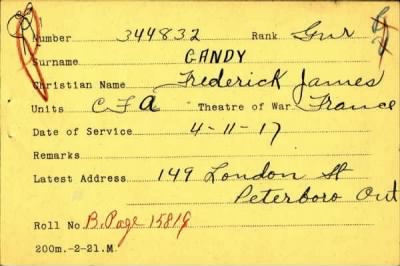 Number 344832 Rank Gnr
Surname GANDY
Christian Name Frederick James
Units C F A Theatre of War France
Date of Service 4-11-17
Remarks
Latest Address 149 London St
Peterboro Ont
Roll No. B. Page 15819
200m.-2-21.M.